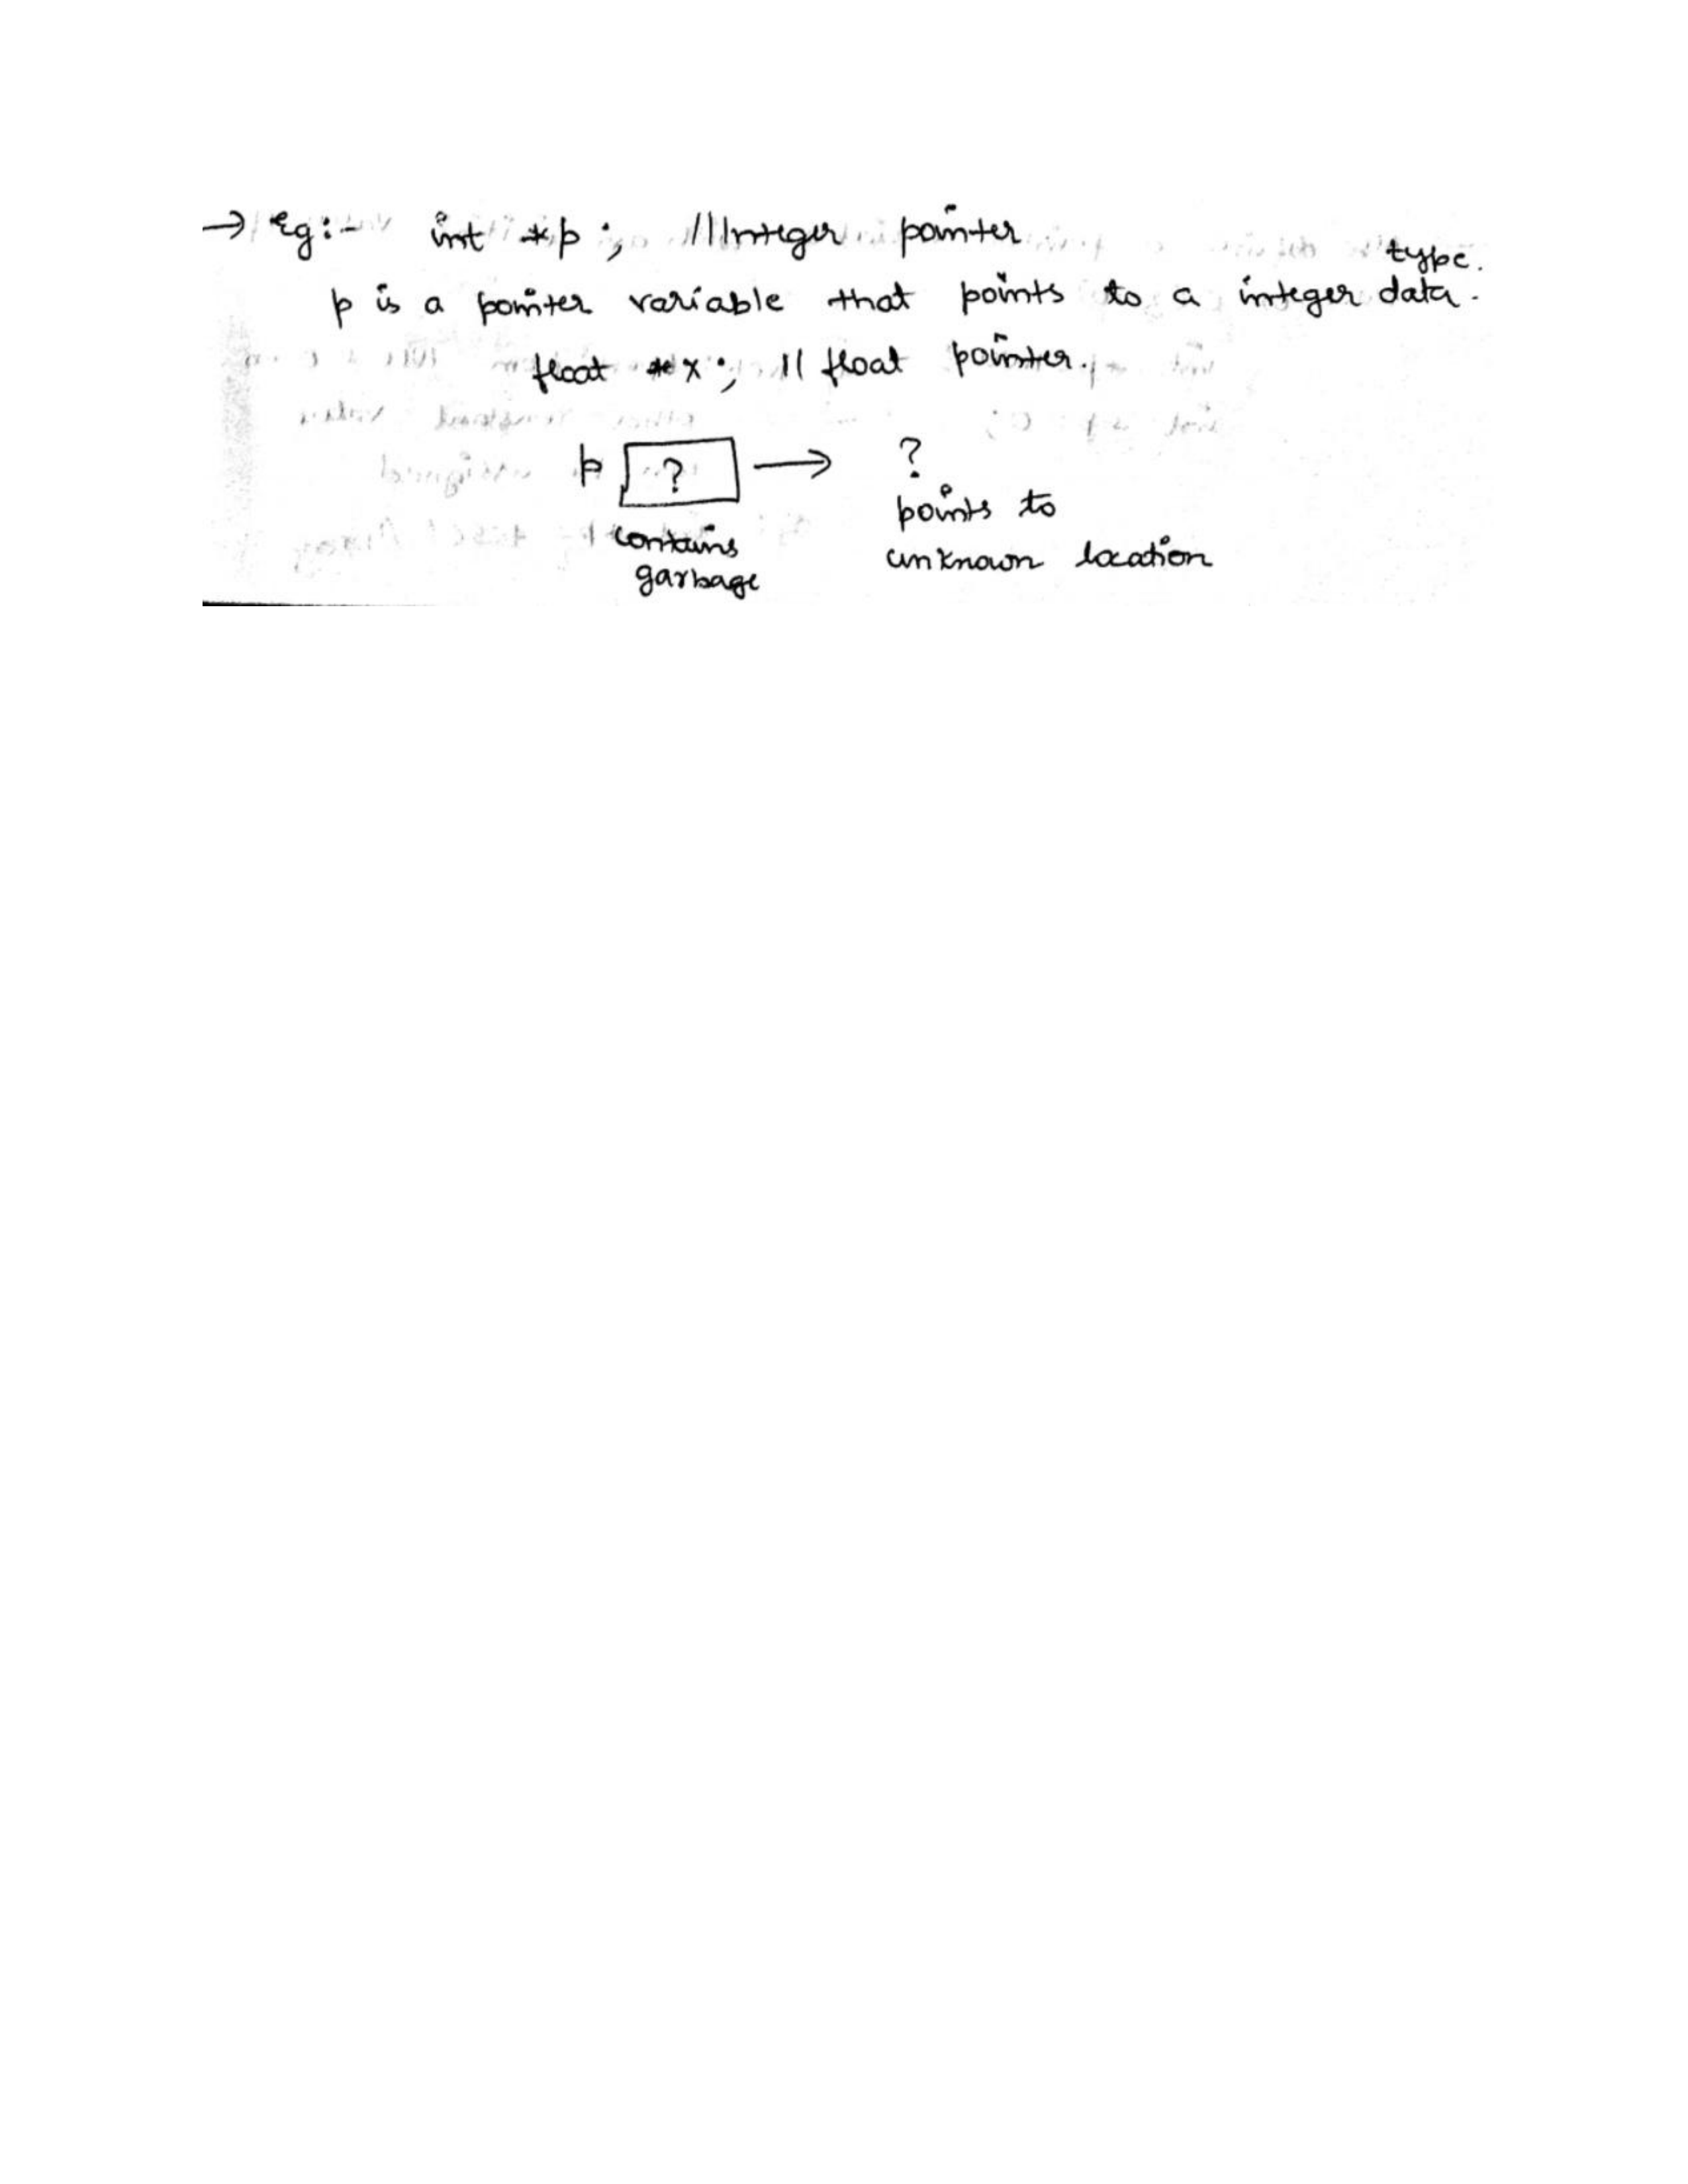 → Eg:- int *p; //Integer pointer
p is a pointer variable that points to a integer data type.
float *x; // float pointer.
p ? → ?
contains garbage
points to unknown location